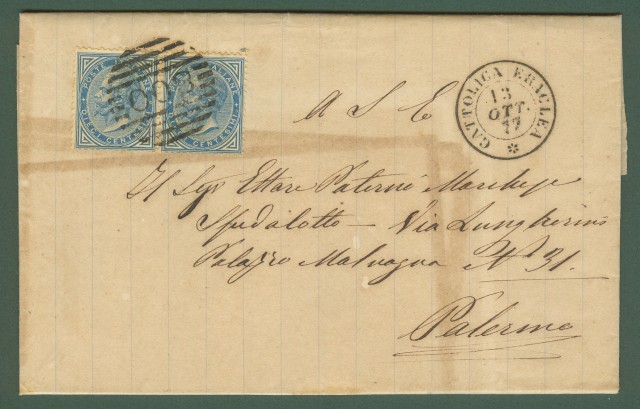 POSTE ITALIANE
DIECI CENTESIMI
DIECI CENTESIMI
CATTOLICA ERACLEA
13
OTT.
77
A S E
Il Sigr Ettore Paternò Marchese
Spedalotto – Via Lungarini
Palazzo Malvagna N° 31.
Palermo